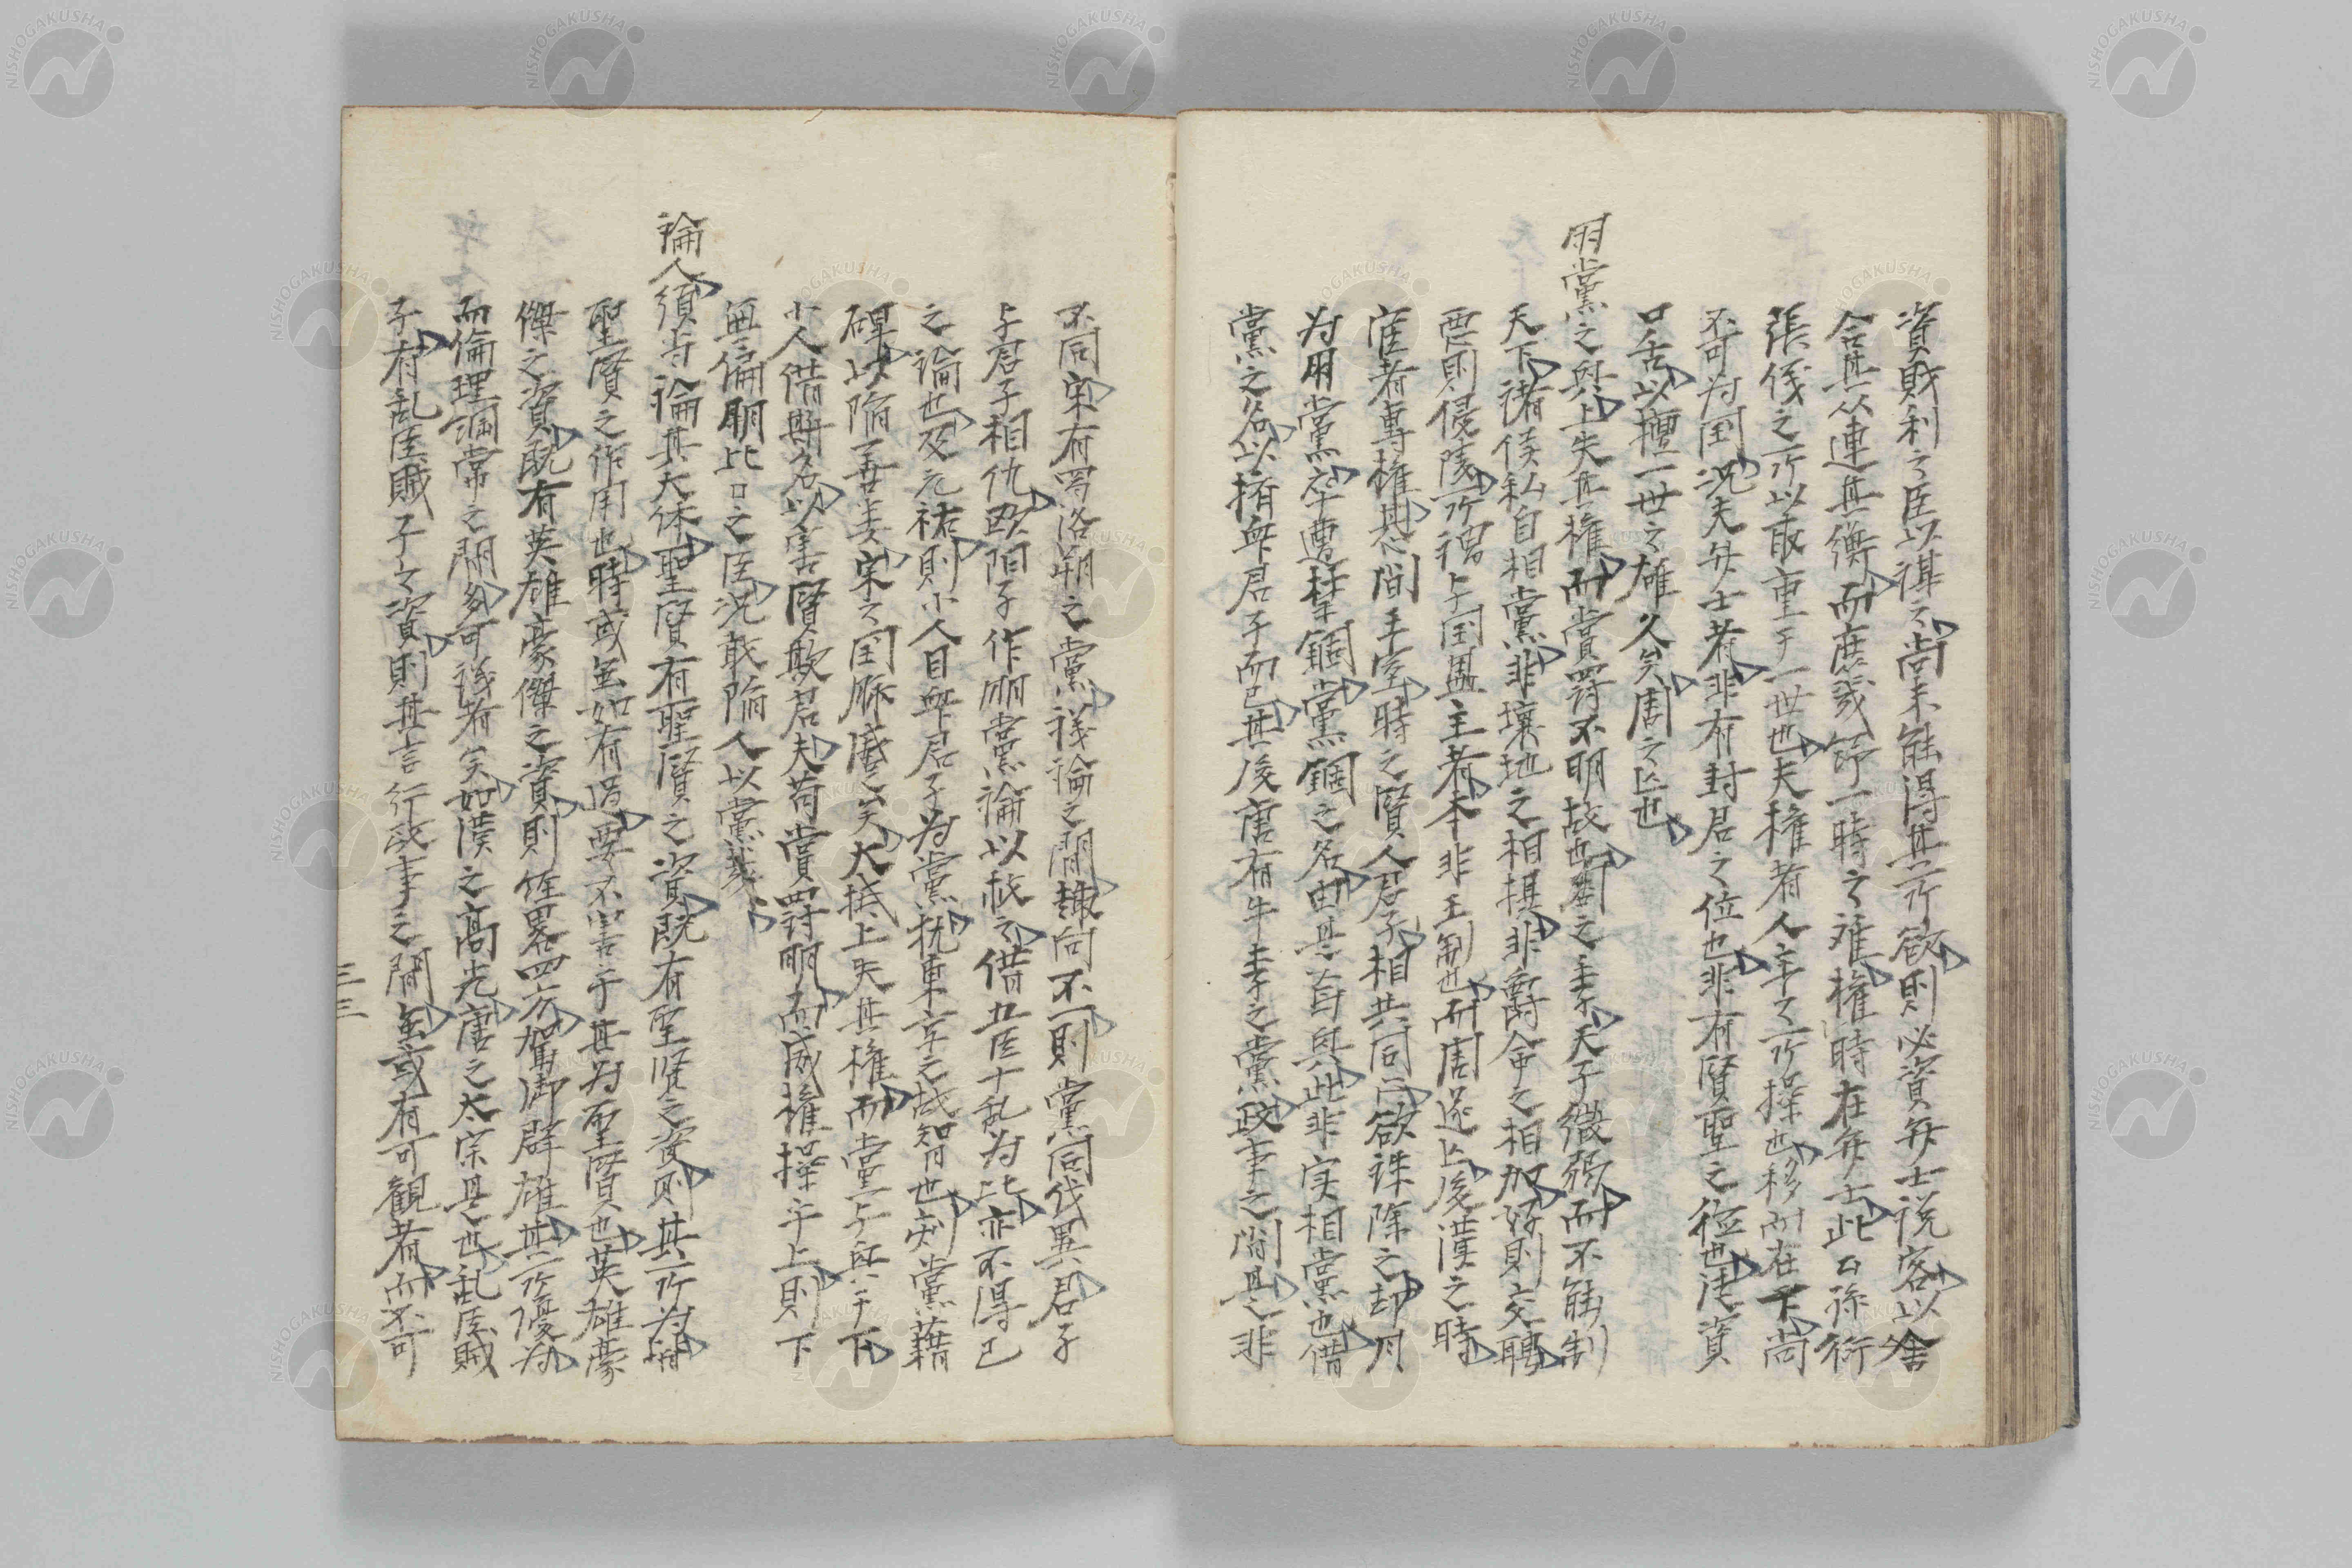 資財利之臣以謀之尚未能得其所欲則必資弁士説客以舎
合其从連其衡而庶幾紓一時之難権時在弁士此公孫衍
張儀之所以取重于一世也夫権者人主之所操也移而在下尚
不可为国況夫弁士者非有封君之位也非有賢聖之徳也徒資
口舌以擅一世之雄久矣周之亡也
朋黨之興上失其権而賞罰不明故也周之季天子微弱而不能制
天下諸侯私自相黨非壤地之相棋非爵命之相加好則交聘
悪則侵陵所謂与国盟主者本非王制也而周遂亡後漢之時
宦者專権其間王室時之賢人君子相共同心欲誅除之却反
为朋黨之士遭禁錮黨錮之名由其首興此非実相黨也借
黨之名以擠毎君子而已其後唐有牛李之黨政事之間是非
不同宋有蜀洛朔之黨議論之間趣向不一則黨同伐異君子
与君子相仇欧陽子作朋黨論以救之借五臣十乱为比亦不得已
之論也及元祐則小人目毎君子为黨扰東京之故智也刻黨藉
碑以陥善类宋之国脉蹙矣大抵上失其権而黨与興于下
小人借斯名以害賢欺君夫苟賞罰明而威権操乎上則下
無偏朋比口之臣況敢陥人以黨哉
論人須当論其大体聖賢有聖賢之資既有聖賢之資則其所为皆
聖賢之作用也時或無如有過要不害于其为聖賢也英雄豪
傑之資既有英雄豪傑之資則經畧四方駕御群雄其所優为
而倫理綱常之間多可議者矣如漢之高光唐之太宗是也乱臣賊
子有乱臣賊子之資則其言行政事之間無或有可観者而不可
三三